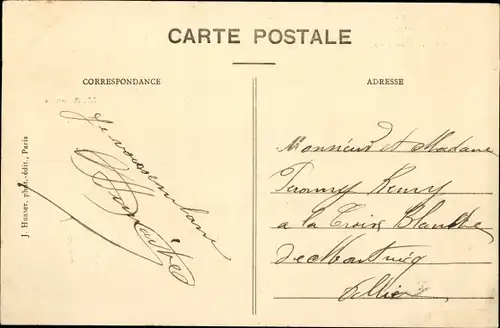 CARTE POSTALE
CORRESPONDANCE
ADRESSE
J. Hauser, phot.-édit., Paris
Je vous embrasse
Monsieur et Madame
Remy
a la Croix Blanche
de
Allier